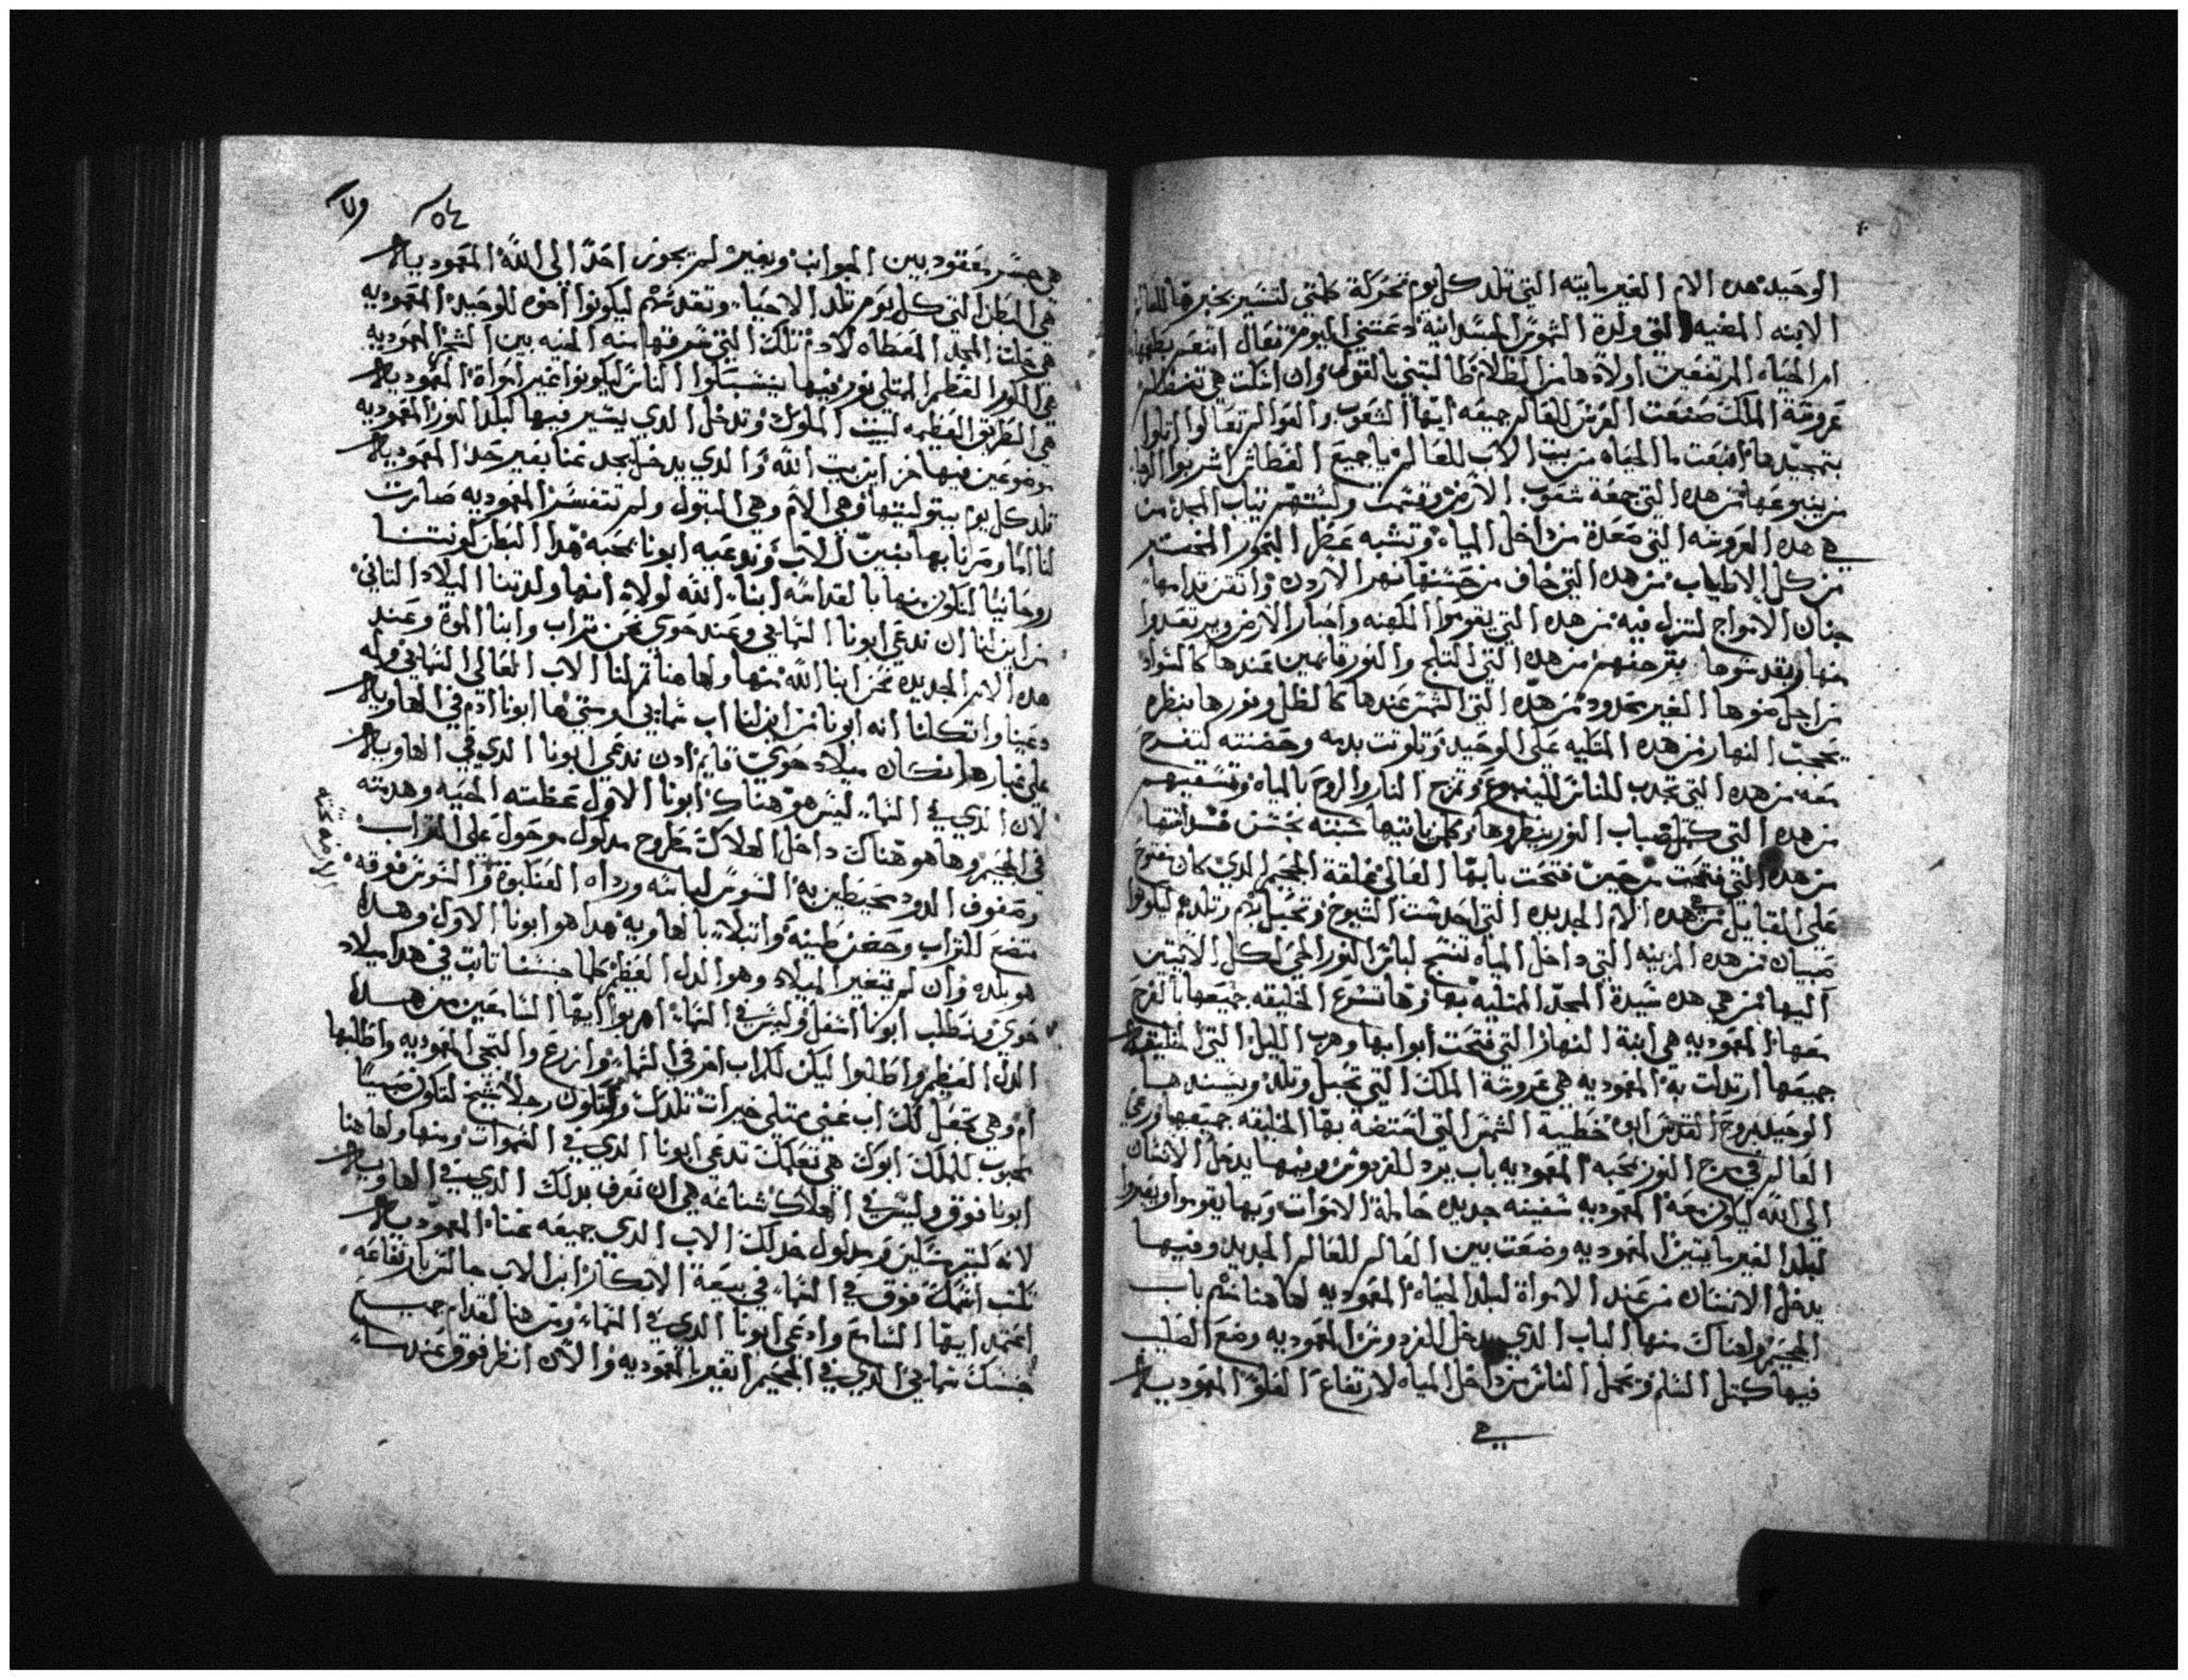 الوحيد هده الام الغير مايته التي تلد كل يوم تحركة كلمتي لتسير بخبرها للعالم
الابنه المضيه التي ولدة الشموس الجسدانية دعتني اليوم تعال اتنعم
امر المياه المرتفعين اولادها من الظلام طالبتني بالقول وان اتكلت هي تتفضل
عروسة الملك صنعت العرس للعالم جميعه ايها الشعوب والعوالم تعالوا
بتمجيدها انبعت ما الحياه من بيت الاب للعالم يا جميع العطاش اشربوا
من ينبوعها من هده التي جمعة شعوب الارض وقسمت ولبستهم تياب المجد من
هي هده العروسه التي صعدة من داخل المياه وتشبه عطر البخور المختلط
من كل الاطياب من هده التي خاف من حسنها نهر الاردن واتقن قدامها
جناح الامواج لتنزل فيه من هده التي يقوموا الكهنه واحبار الارض ويرتعدوا
منها ويقدسوها بترجفهم من هده التي التلج والنور قايمين عندها كالسواد
من اجل ضوها الغير محدود من هده التي الشمس عندها كالظل ونورها بنظره
يحجب النهار من هده المتليه على الوحيد وتلوتت بدمه وحضنته ليتفرح
معه من هده التي تجدب للناس للينبوع وتمزج النار والروح بالمياه وتسقيهم
من هده التي كمتل ضباب النور ينظروها وكلمن ياتيها تسبته بحسن قداستها
من هده التي فتحت من حين فتحت بابها العالي غلقة الجحيم الدي كان مفتوح
على القبايل من هده الام الجديده التي احدتت الشيوخ وتحبل بهم وتلدهم ليكونوا
صبيان من هده المربيه التي داخل المياه تنسج لباس النور الحي لكل الاتيين
اليها من هي هده سيدة المجد المتليه بها وها تسرع الخليقه جميعها بالفرح
معها المعموديه هي ابنة النهار التي فتحت ابوابها وهرب الليل التي الخليقه
جميعها ارتدت به المعموديه هي عروسة الملك التي تحبل وتلد ويسندها
الوحيد بروح القدس ابوه خطيبة الشمس التي استضة بها الخليقه جميعها ورعي
العالم في مرج النور بمحبه المعموديه باب يرد للفردوس وفيها يدخل الانسان
الى الله ليكون معه المعموديه سفينه جديده حاملة الاموات وبها يقوموا ويعبروا
لبلد الغير مايتين المعموديه وضعت بين العالم للعالم الجديد وفيها
يدخل الانسان من عند الامواة لبلد الحياه المعموديه لهاهنا سم باب
الجحيم وهناك منها الباب الدي يدخل للفردوس المعموديه وضع الصليب
فيها كمتل السلم وتحمل الناس من داخل المياه لارتفاع العلو المعموديه
هي
٥٤
هي جسر معقود بين الجوانب وبغيره لم يجوز احدا الى الله المعموديه
هي البطن التي كل يوم تلد الاحبا وتقدسهم ليكونوا اخوه للوحيد المعموديه
هي حلت المجد المعطاه لادم تلك التي سرقتها منه الحيه بين الشجر المعموديه
هي الكور العظيم الممتلي نور فيها ينسبكوا الناس ليكونوا غير امواة المعموديه
هي الطريق العظيمه لبيت الملوك وتدخل الدي يسير فيها لبلد النور المعموديه
موضوعين فيها خزاين بيت الله والدي يدخل يجد غنا بغير حد المعموديه
تلد كل يوم ببتوليتها وهي الام وهي البتول ولم تتفسد المعموديه صارت
لنا اما وصرنا بها بنين للاب وندعيه ابونا بمحبه هدا البطن كونتنا
روحانيا لنكون منها بالقداسه ابنا الله لولا انها ولدتنا الميلاد التاني
من اين لنا ان ندعي ابونا السماني وعند حوي نحن تراب وابنا الموة وعند
هده الام الجديده نحن ابنا الله منها ولهاهنا تم لنا الاب العالي السماني وله
دعينا واتكلنا انه ابونا من اين لنا اب سماني وستي ها ابونا ادم في الهاويه
على غبارها بمكان ميلاد حوي قايم ادن ندعي ابونا الدي في الهاويه
لان الدي في السما ليس هو هناك ابونا الاول غطسته الحيه وهدمته
في الجحيم وها هو هناك داخل الهلاك مطروح مدلول موحول على التراب
وصفوف الدود محيطين به السوس لباسه ورداه العنكبوة والسوس فوقه
متضع للتراب وحضن طينه وابتلا بالهاويه هدا هو ابونا الاول وهده
هو بلده وان لم يتغير الميلاد وهو الدل العظيم كلما جنسنا تابت في هدا ميلاد
حوي ونطلب ابونا اسفل وليس في السما اهربوا ايها السامعين من هدا
الدل العظيم واطلبوا ليكن لك اب اخر في السما وانزع والتجي المعموديه واطلبها
ام وهي تجعل لك اب غني ممتلي خيرات تلدك ولتكون رجلا شيخ لتكون صبيا
محبوب للملك ابوك هي تعلمك تدعي ابونا الدي في السموات ومنها ولهاهنا
ابونا فوق وليس في الهلاك شناعه هي ان تعرف بدلك الدي في الهاويه
لانه ليس مسكين ومدلول خد لك الاب الدي جميعه غنا المعموديه
تكتب اسمك فوق في السما في بيعة الابكار ابن الاب جالس بارتفاعه
اعتمد ايها السامع وادعي ابونا الدي في السما ومن هنا لقدام جميع
جنسك سماني الدي في الجحيم اتغير بالمعموديه والان انظر فوق عند